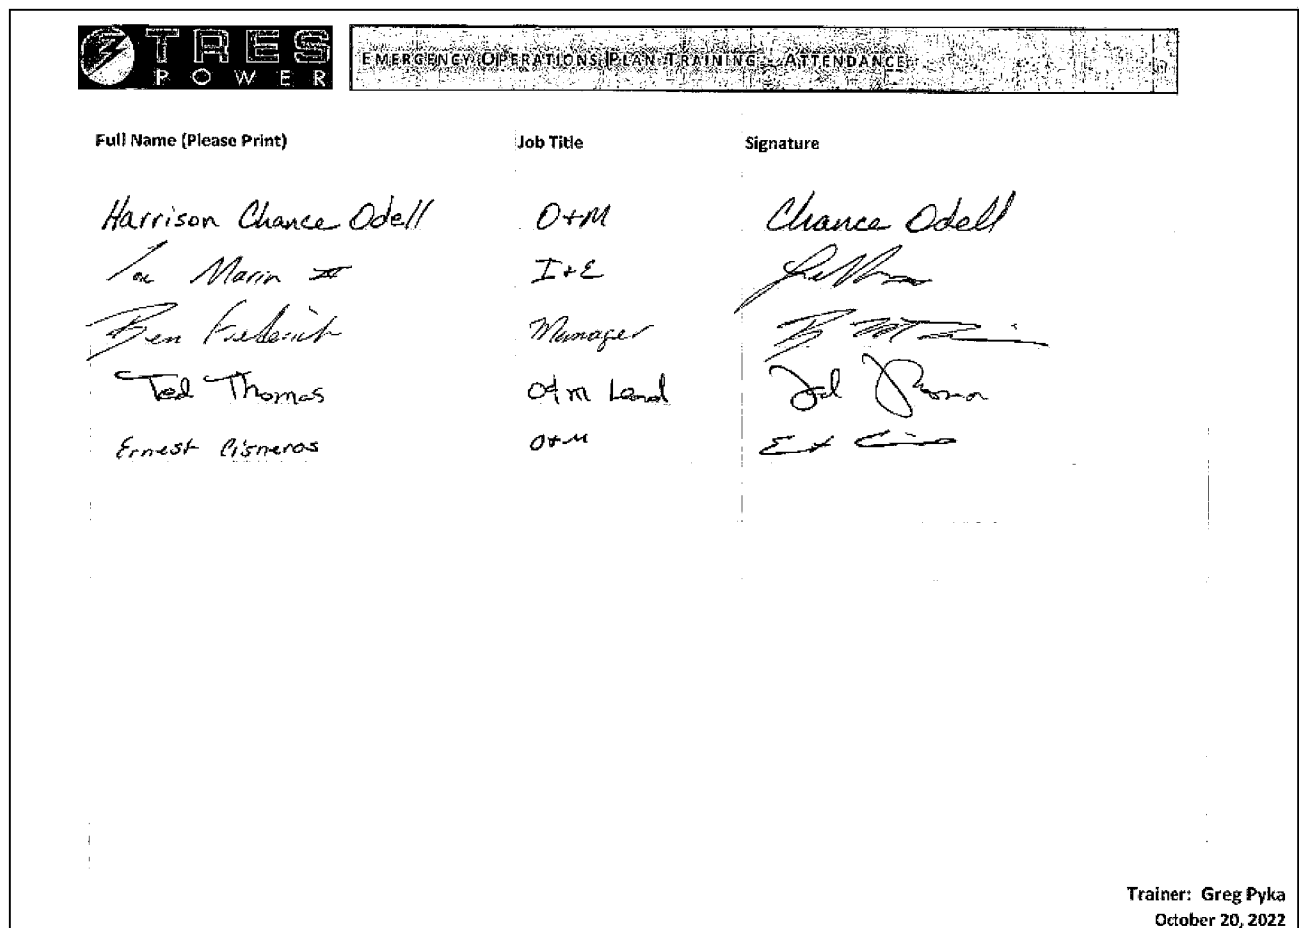 TRES
POWER
EMERGENCY OPERATIONS PLAN TRAINING - ATTENDANCE
Full Name (Please Print) Job Title Signature
Harrison Chance Odell O+M Chance Odell
Marin II I+E
Ben Frederich Manager
Ted Thomas O+M Lead Ted Thomas
Ernest Cisneros O+M
Trainer: Greg Pyka
October 20, 2022